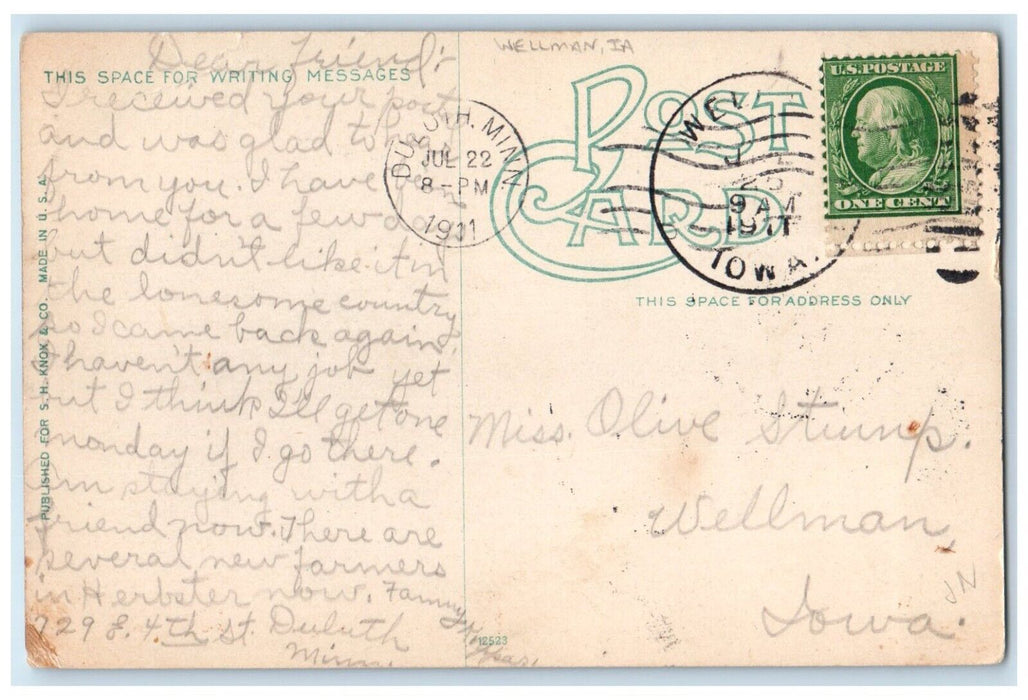 WELLMAN, IA
THIS SPACE FOR WRITING MESSAGES
Dear Friend:-
I received your post
and was glad to hear
from you. I have been
home for a few days
but didn't like it in
the lonesome country
so I came back again.
I haven't any job yet
but I think I'll get one
monday if I go there.
Am staying with a
friend now. There are
several new farmers
in Herbster now. Fanny
729 E. 4th St. Duluth
Minn.
PUBLISHED FOR S. H. KNOX & CO. MADE IN U. S. A.
DULUTH. MINN
JUL 22
8-PM
1911
POST CARD
WEL
9 AM
1911
IOWA.
U.S. POSTAGE
ONE CENT
THIS SPACE FOR ADDRESS ONLY
Miss. Olive Stump.
Wellman,
Iowa.
12523
JN